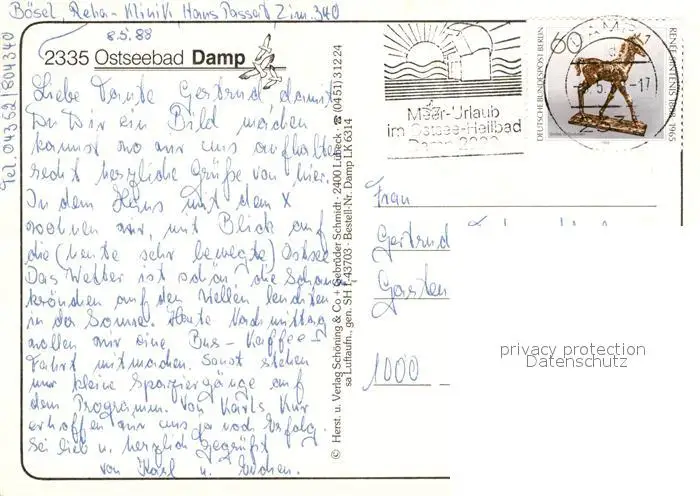 Bösel Reha-Klinik Haus Passat Zim. 340
8.5.88
Tel. 04352/804340
2335 Ostseebad Damp
Liebe Tante Gertrud damit
Du Dir ein Bild machen
kannst wo wir uns aufhalten
recht herzliche Grüße von hier.
In dem Haus mit dem X
wohnen wir, mit Blick auf
die (heute sehr bewegte) Ostsee
Das Wetter ist schön, die Schaum
krönchen auf den Wellen leuchten
in der Sonne. Heute Nachmittag
wollen wir eine Bus-Kaffee-
Fahrt mitmachen. Sonst stehen
nur kleine Spaziergänge auf
dem Programm. Von Karls Kur
erhoffen wir uns ja noch Erfolg.
Sei lieb u. herzlich gegrüßt
von Karl u.
© Herst. u. Verlag Schöning & Co + Gebrüder Schmidt · 2400 Lübeck · ☎ (04 51) 3 12 24
sa Luftaufn., gen. SH 1-43703 · Bestell-Nr. Damp LK 6314
Meer-Urlaub
im Ostsee-Heilbad
Damp 2000
DEUTSCHE BUNDESPOST BERLIN
60
RENEE SINTENIS 1888-1965
-17
Frau
Gertrud
Garten
1000
privacy protection
Datenschutz